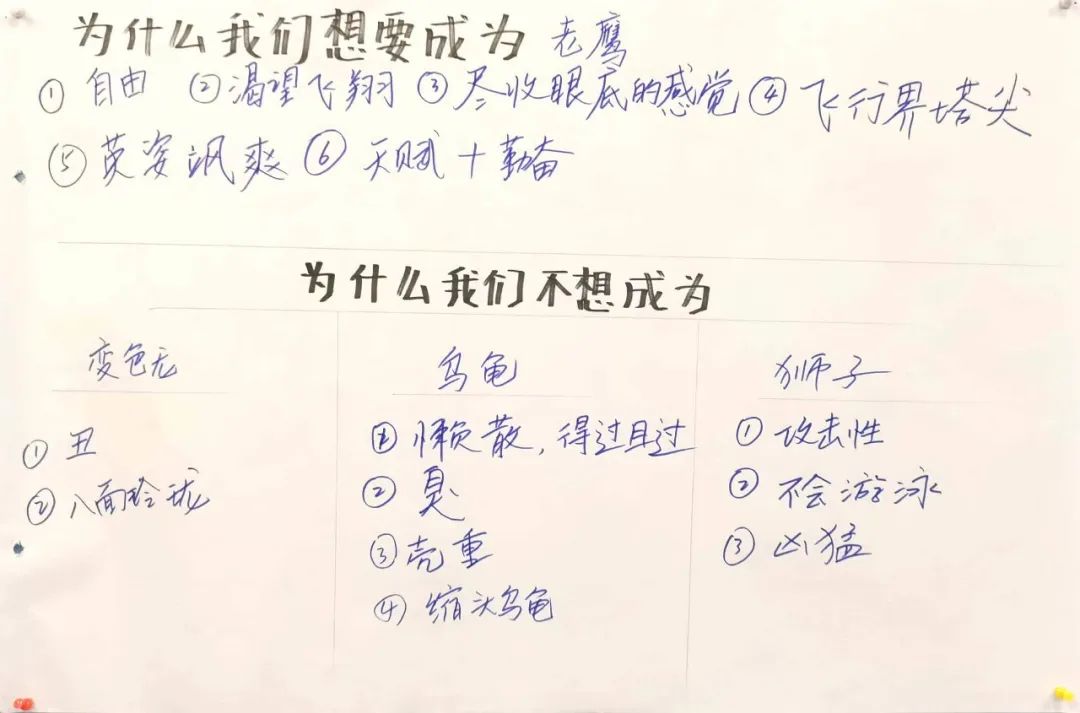 为什么我们想要成为 老鹰
① 自由 ② 渴望飞翔 ③ 尽收眼底的感觉 ④ 飞行界塔尖
⑤ 英姿飒爽 ⑥ 天赋+勤奋
为什么我们不想成为
变色龙
① 丑
② 八面玲珑
乌龟
① 懒散,得过且过
② 臭
③ 壳重
④ 缩头乌龟
狮子
① 攻击性
② 不会游泳
③ 凶猛